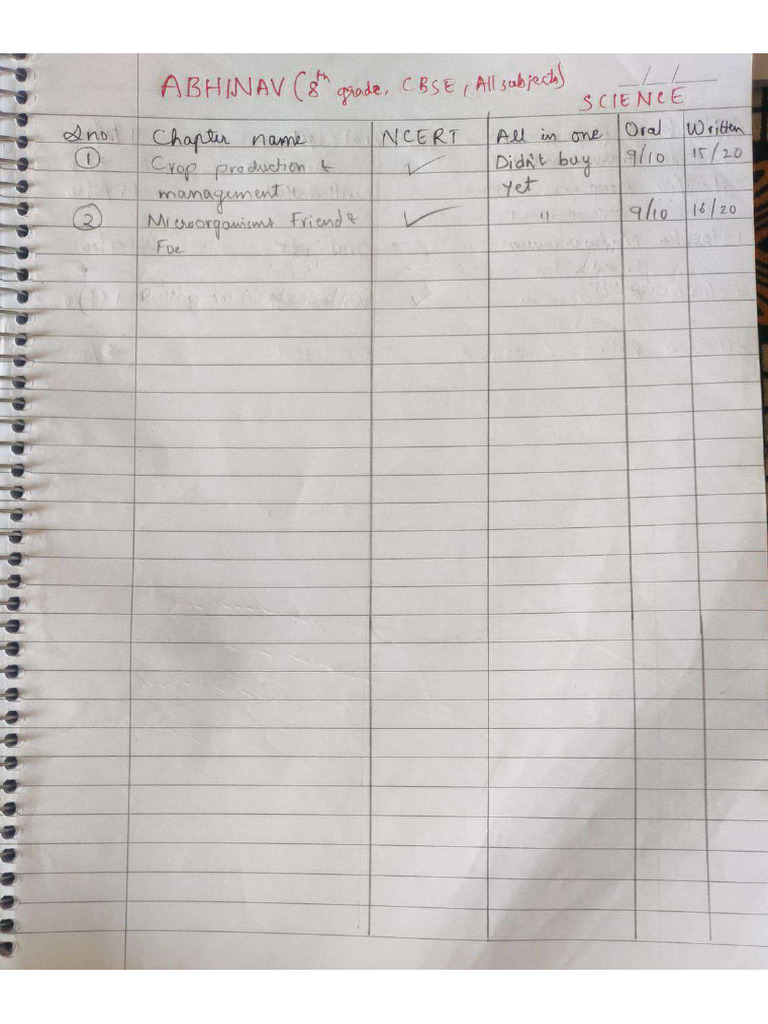 ABHINAV (8th grade, CBSE, All subjects)
__/__/__
SCIENCE
S no. Chapter name NCERT All in one Oral Written
① Crop production & ✓ Didn't buy 9/10 15/20
management yet
② Microorganisms Friend & ✓ " 9/10 16/20
Foe